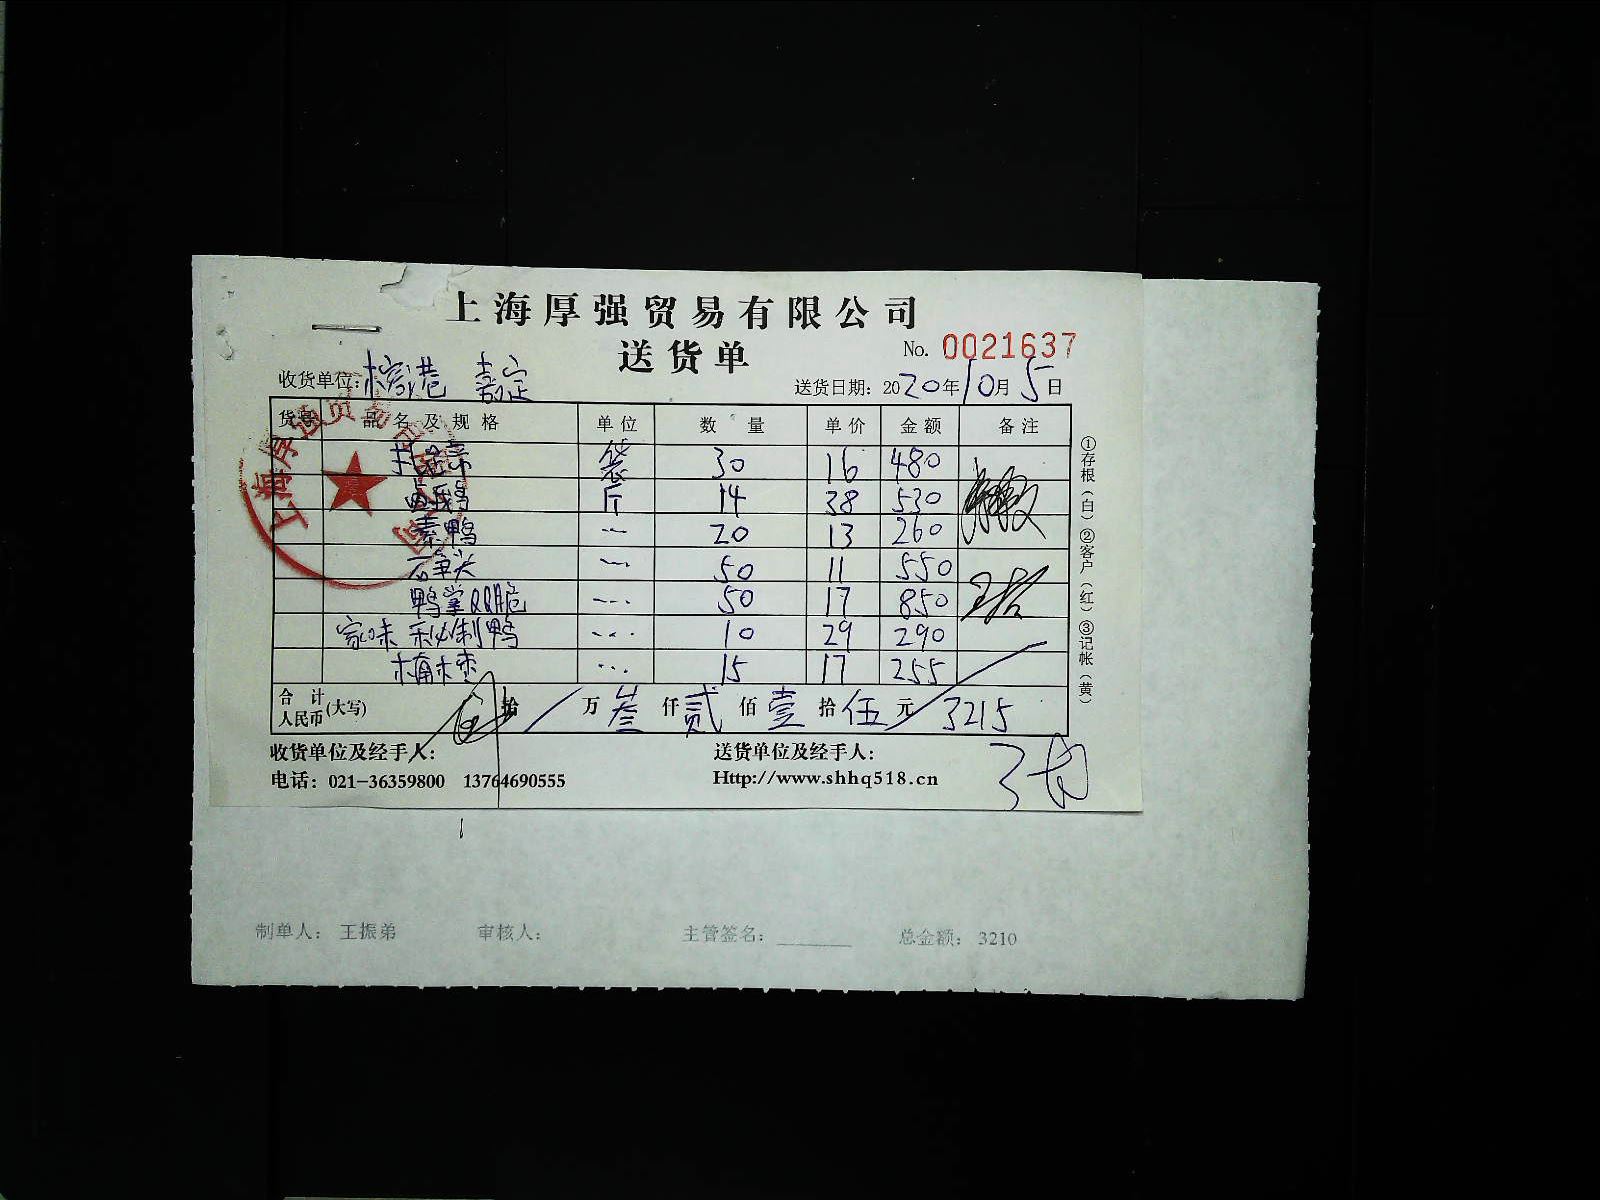 上海厚强贸易有限公司
送货单
No. 0021637
收货单位: 港 嘉定
送货日期: 2020年10月5日
货号 品名及规格 单位 数量 单价 金额 备注
袋 30 16 480
卤鹅 斤 14 38 530
素鸭 20 13 260
50 11 550
鸭掌QQ脆 50 17 850
家味 秘制鸭 10 29 290
15 17 255
合计人民币(大写) 拾 / 万 叁 仟 贰 佰 壹 拾 伍 元 3215
收货单位及经手人:
送货单位及经手人:
电话: 021-36359800 13764690555
Http://www.shhq518.cn
①存根(白)②客户(红)③记帐(黄)
制单人: 王振弟 审核人: 主管签名: 总金额: 3210